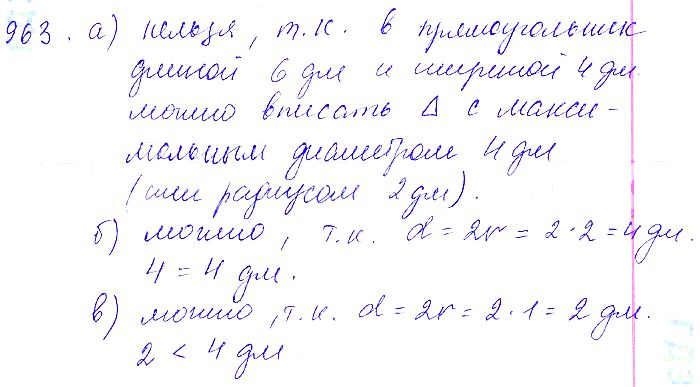 963. а) нельзя, т.к. в прямоугольник
длиной 6 дм и шириной 4 дм.
можно вписать Δ с макси-
мальным диаметром 4 дм
(или радиусом 2 дм).
б) можно, т.к. d = 2r = 2·2 = 4 дм.
4 = 4 дм.
в) можно, т.к. d = 2r = 2·1 = 2 дм.
2 < 4 дм